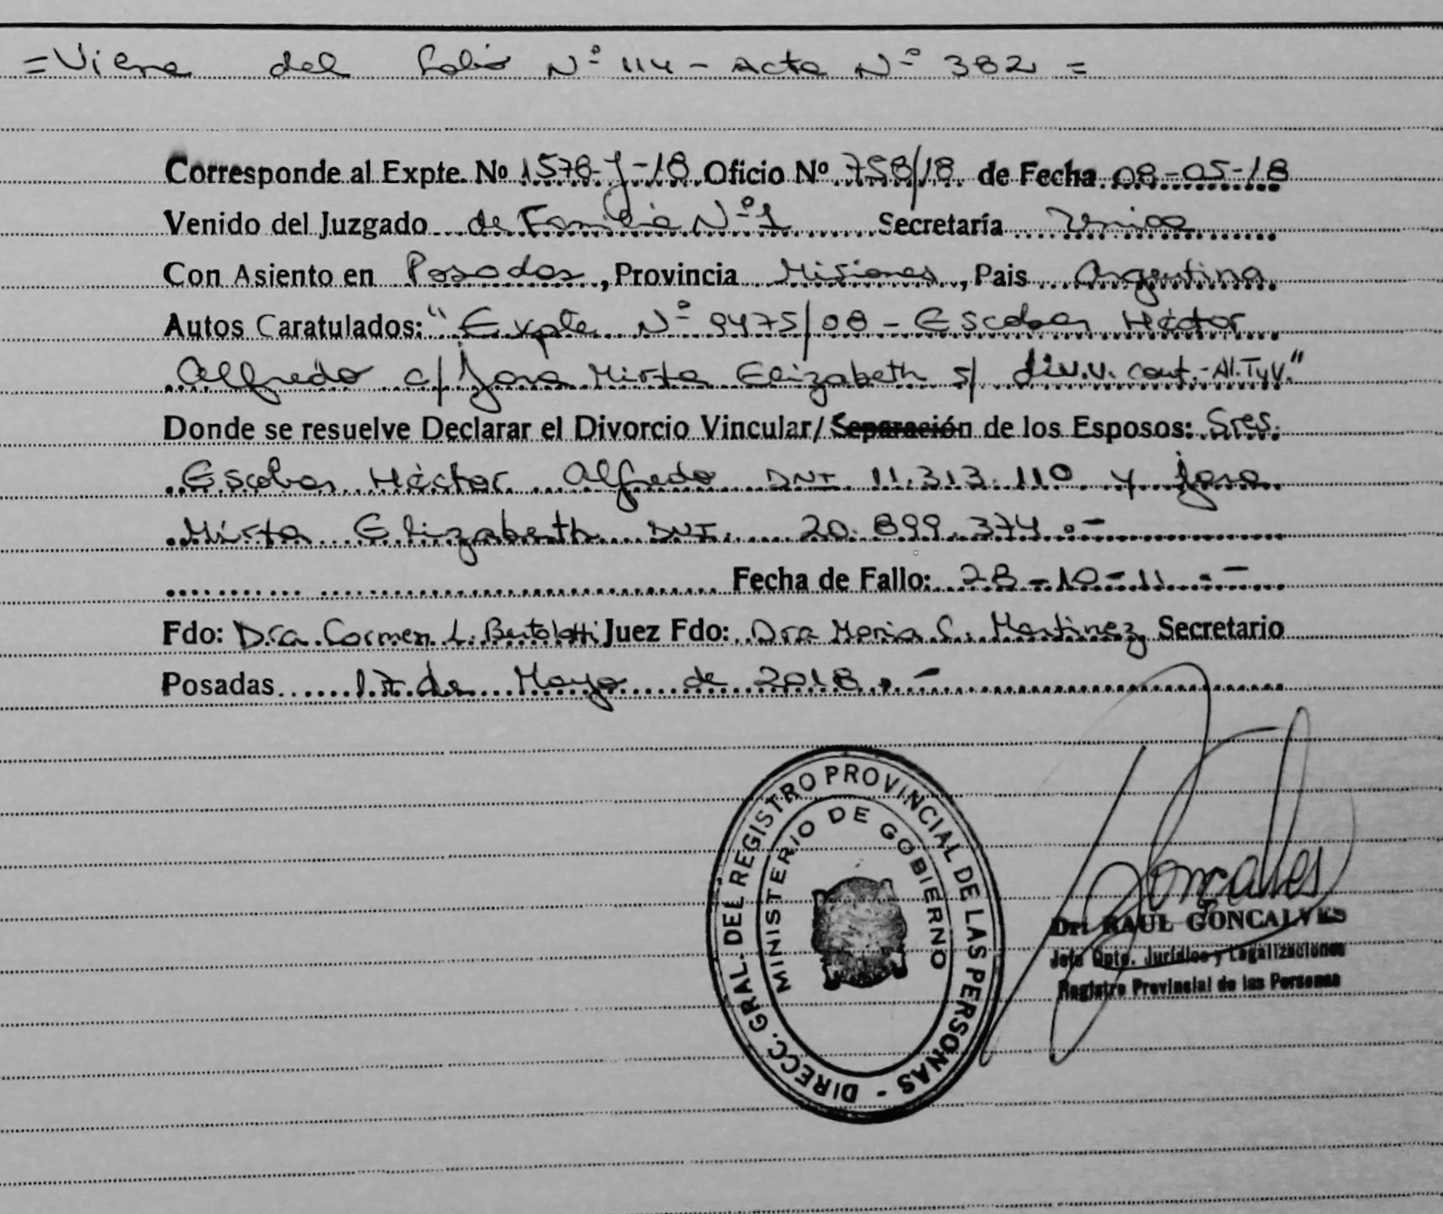 =Viene del folio Nº 114 - Acta Nº 382 =
Corresponde al Expte. Nº 1578-J-18 Oficio Nº 758/18 de Fecha 08-05-18
Venido del Juzgado de Familia Nº 1 Secretaría Unica
Con Asiento en Posadas, Provincia Misiones, Pais Argentina
Autos Caratulados: "Expte Nº 9475/08 - Escobar Héctor
Alfredo c/ Jara Mirta Elizabeth s/ div. v. cont.-Al.TyV."
Donde se resuelve Declarar el Divorcio Vincular/Separación de los Esposos: Sres.
Escobar Héctor Alfredo DNI 11.313.110 y Jara
Mirta Elizabeth DNI. 20.899.374.-
Fecha de Fallo: 28-10-11.-
Fdo: Dra. Carmen L. Bertolotti Juez Fdo: Dra Maria C. Martinez Secretario
Posadas 17 de Mayo de 2018.-
DIRECC. GRAL. DEL REGISTRO PROVINCIAL DE LAS PERSONAS -
MINISTERIO DE GOBIERNO
Gonçalves
Dr. RAUL GONCALVES
Jefe Dpto. Jurídico y Legalizaciones
Registro Provincial de las Personas